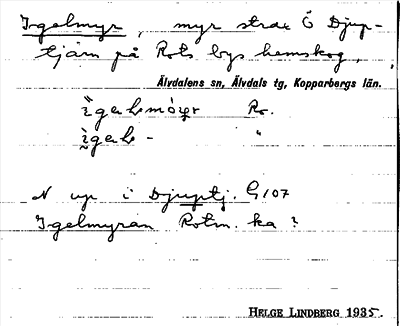 Igelmyr, myr strax Ö Djup-
tjärn på Rots bys hemskog,
Älvdalens sn, Älvdals tg, Kopparbergs län.
Ro.
"
N up i Djuptj. G107
Igelmyran Rotm. ka ?
HELGE LINDBERG 1935.